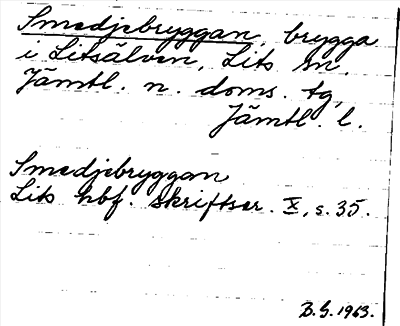 Smedjebryggan, brygga
i Litsälven, Lits sn,
Jämtl. n. doms. tg,
Jämtl. l.
Smedjebryggan
Lits hbf. skriftser. X, s. 35.
B.G. 1963.